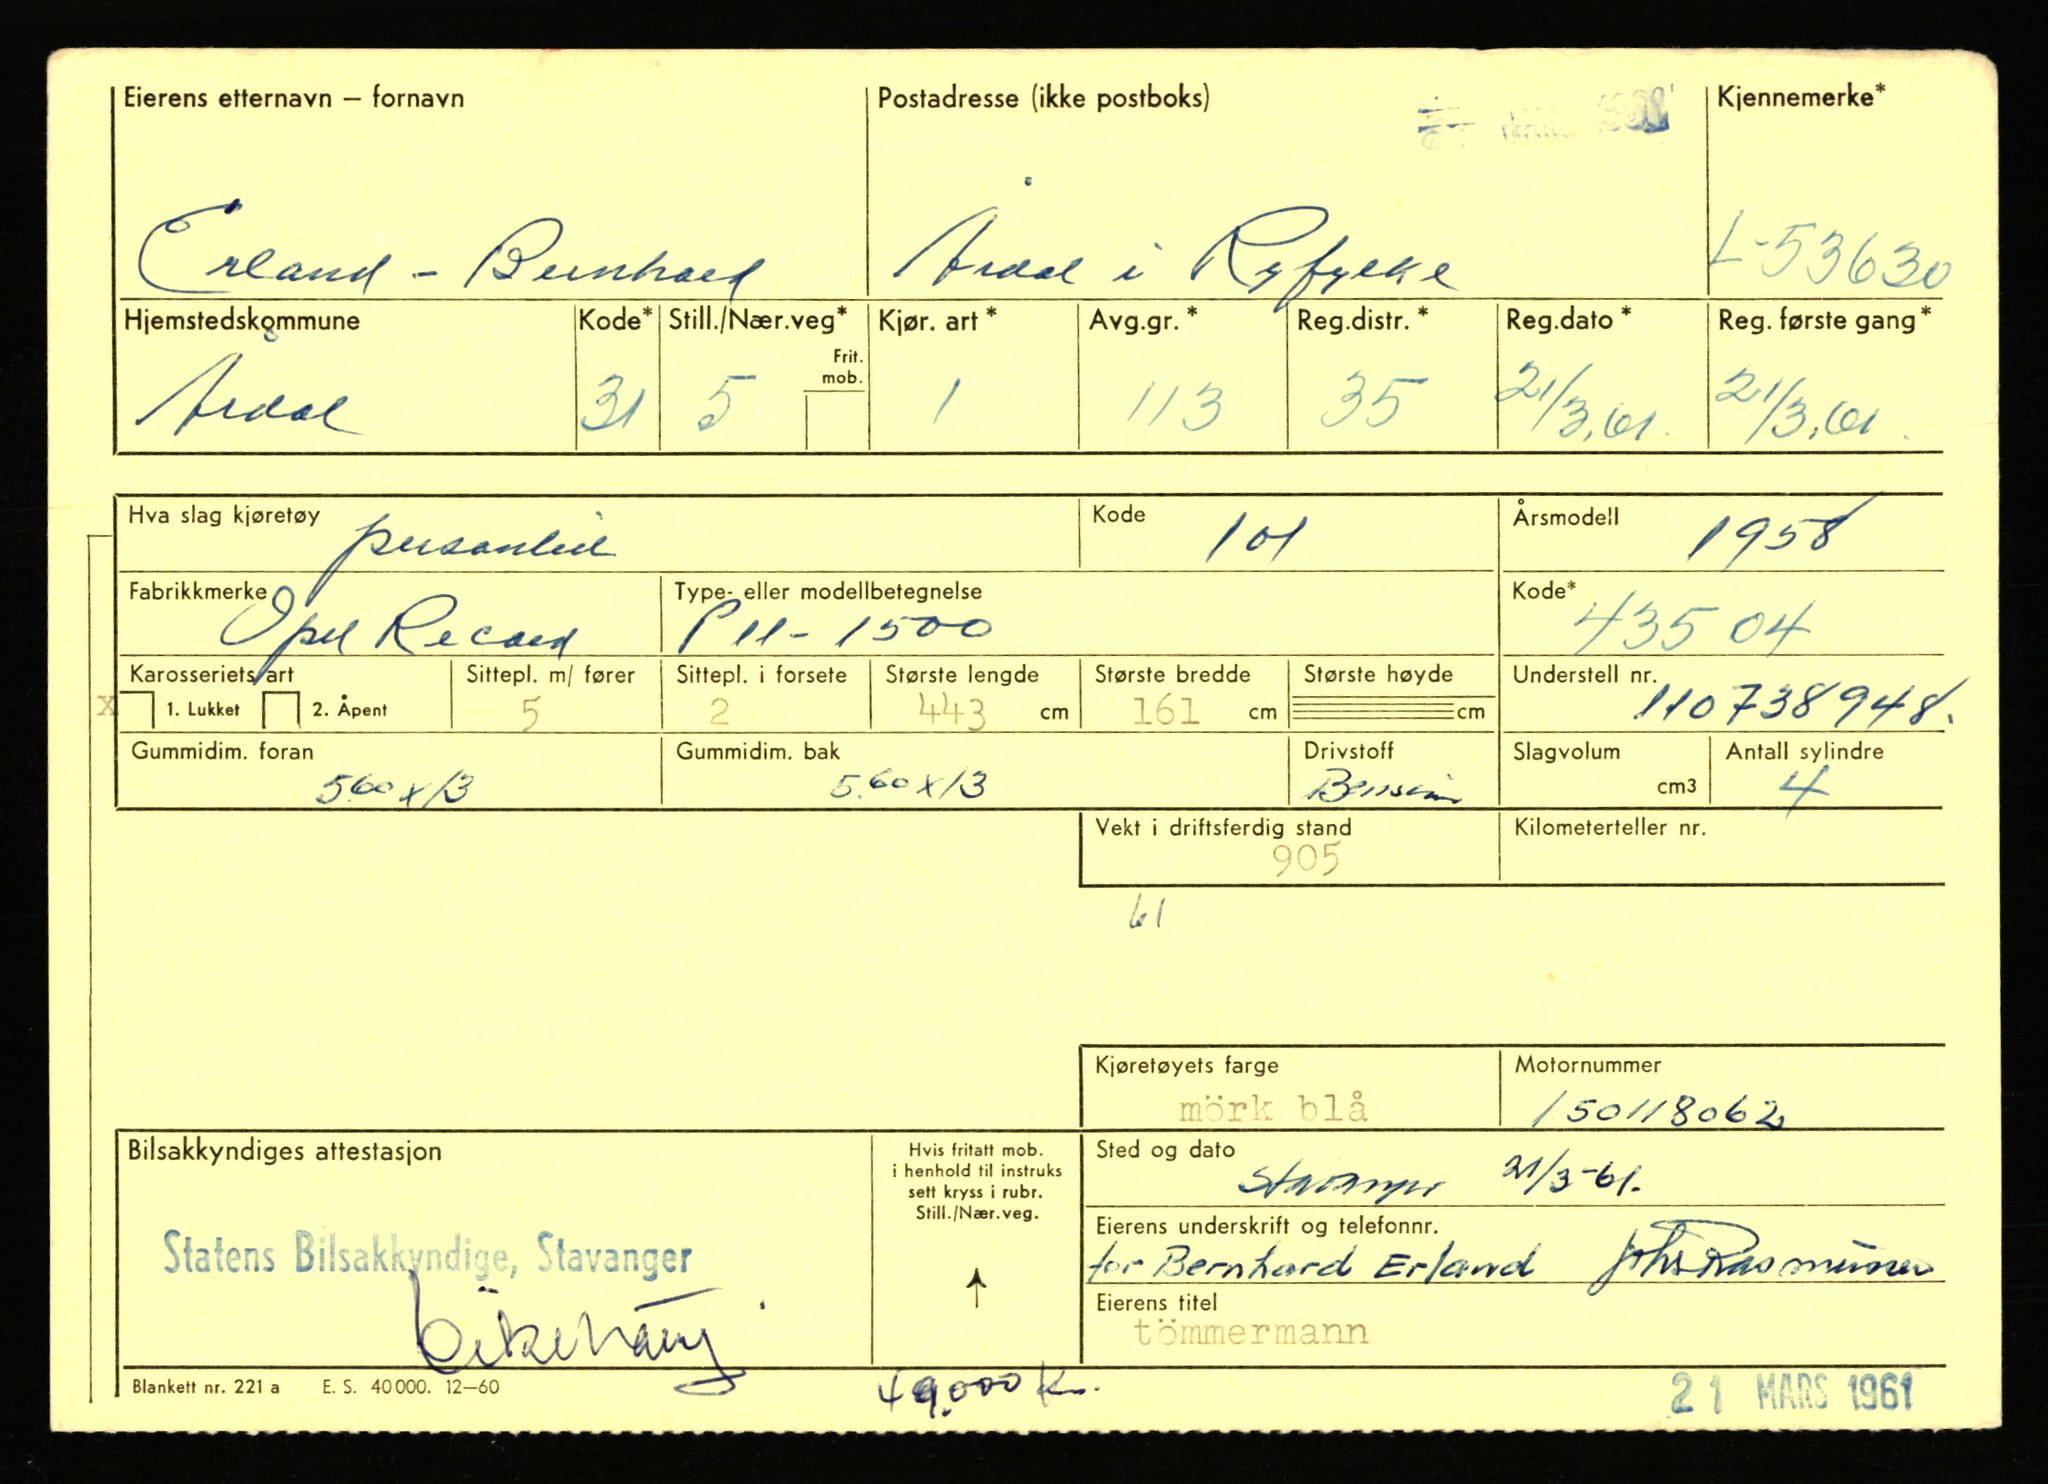 Eierens etternavn – fornavn
Postadresse (ikke postboks)
Kjennemerke*
Erland - Bernhard
Årdal i Ryfylke
L-53630
Hjemstedskommune
Kode*
Still./Nær.veg*
Frit. mob.
Kjør. art *
Avg.gr. *
Reg.distr. *
Reg.dato *
Reg. første gang *
Årdal
31
5
1
113
35
21/3,61.
21/3,61.
Hva slag kjøretøy
personbil
Kode
101
Årsmodell
1958
Fabrikkmerke
Opel Record
Type- eller modellbetegnelse
P 11 - 1500
Kode*
435 04
Karosseriets art
x 1. Lukket 2. Åpent
Sittepl. m/ fører
5
Sittepl. i forsete
2
Største lengde
443 cm
Største bredde
161 cm
Største høyde
cm
Understell nr.
110738948.
Gummidim. foran
560x13
Gummidim. bak
5.60x13
Drivstoff
Bensin
Slagvolum
cm3
Antall sylindre
4
Vekt i driftsferdig stand
905
Kilometerteller nr.
61
Kjøretøyets farge
mörk blå
Motornummer
150118062
Bilsakkyndiges attestasjon
Statens Bilsakkyndige, Stavanger
Hvis fritatt mob.
i henhold til instruks
sett kryss i rubr.
Still./Nær.veg.
Sted og dato
Stavanger 21/3-61.
Eierens underskrift og telefonnr.
for Bernhard Erland
Eierens titel
tömmermann
Blankett nr. 221 a E. S. 40 000. 12—60
49.000 Km.
21 MARS 1961